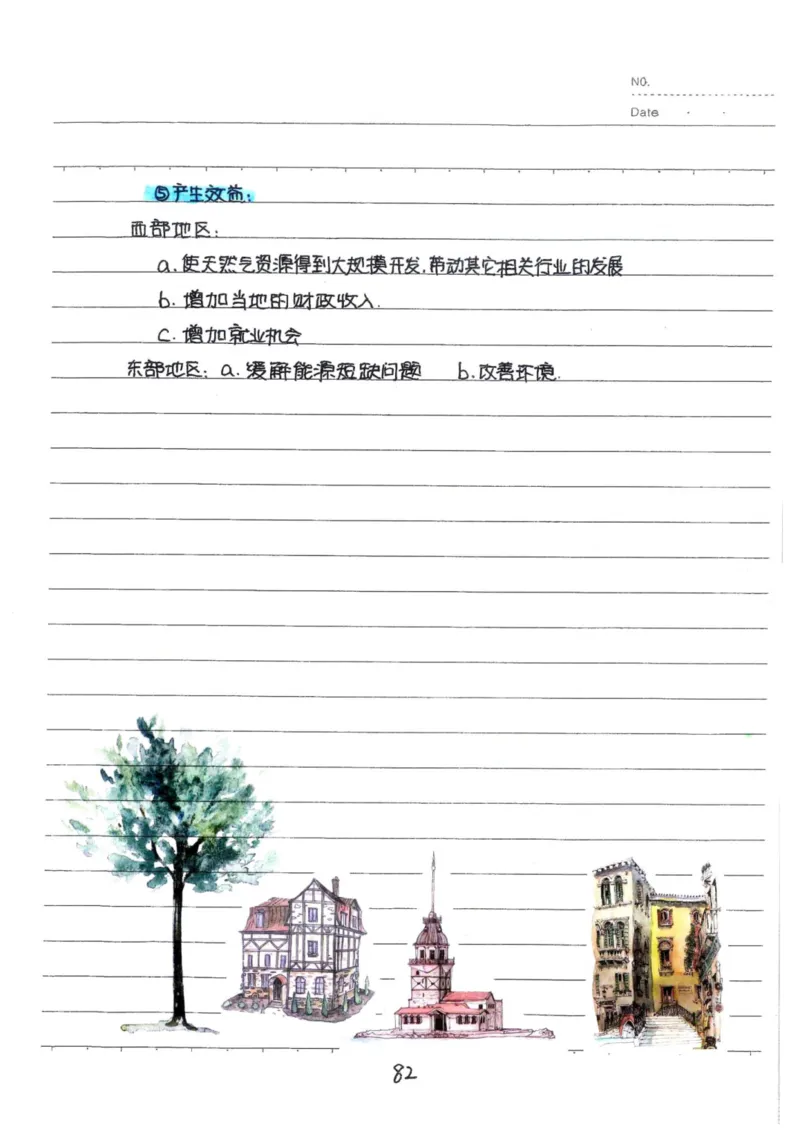 NO.
Date
⑤产生效益：
西部地区：
a.使天然气资源得到大规模开发,带动其它相关行业的发展
b.增加当地的财政收入.
c.增加就业机会
东部地区：a.缓解能源短缺问题 b.改善环境.
82